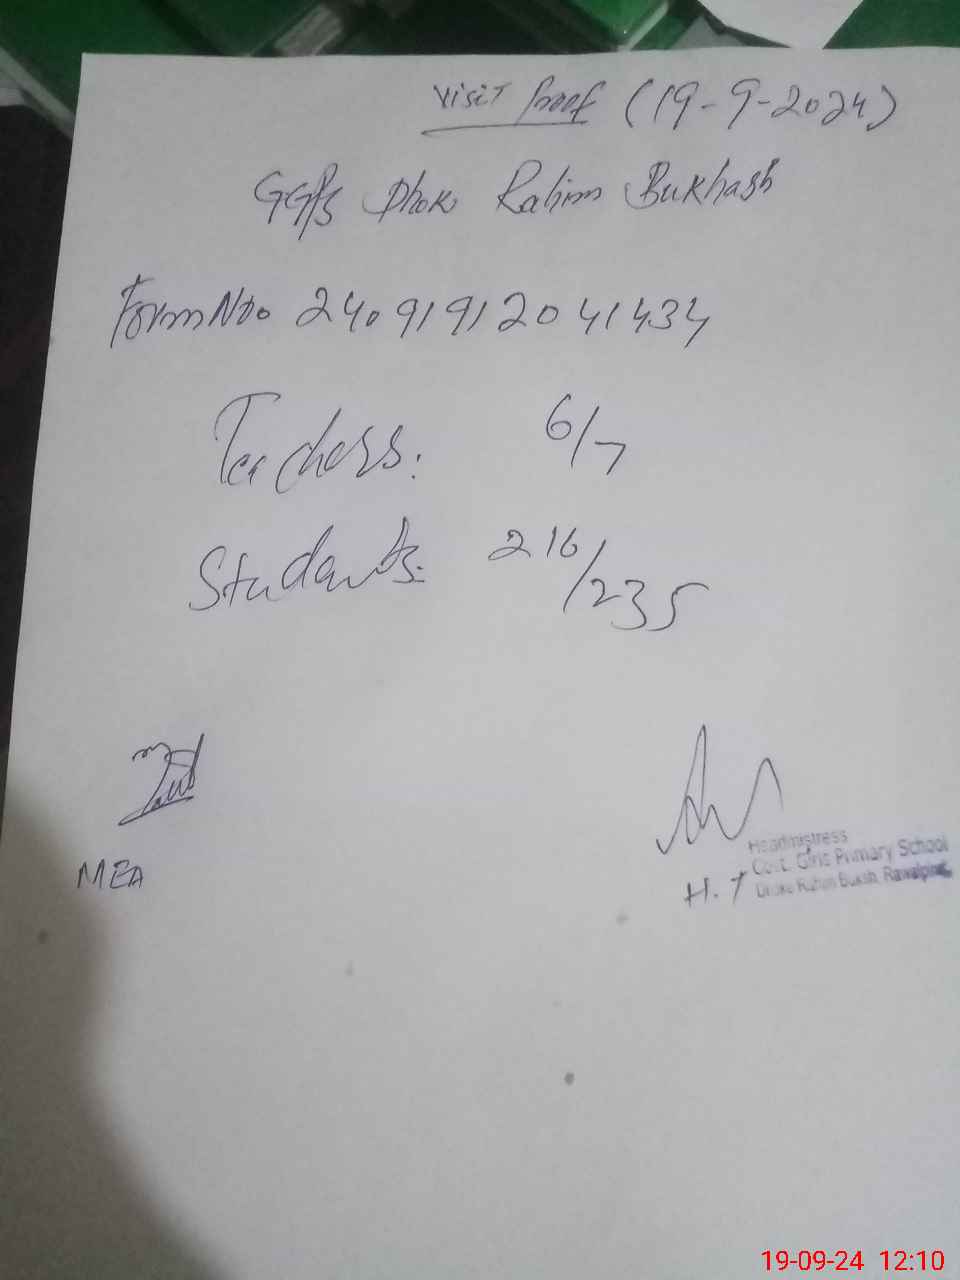 Visit Proof (19-9-2024)
GGPS Dhok Rahim Bukhash
Form No. 2409191204 1434
Teachers: 6/7
Students: 216/235
MEA
Headmistress
Govt. Girls Primary School
H. T
Dhoke Rahim Buksh, Rawalpindi
19-09-24 12:10